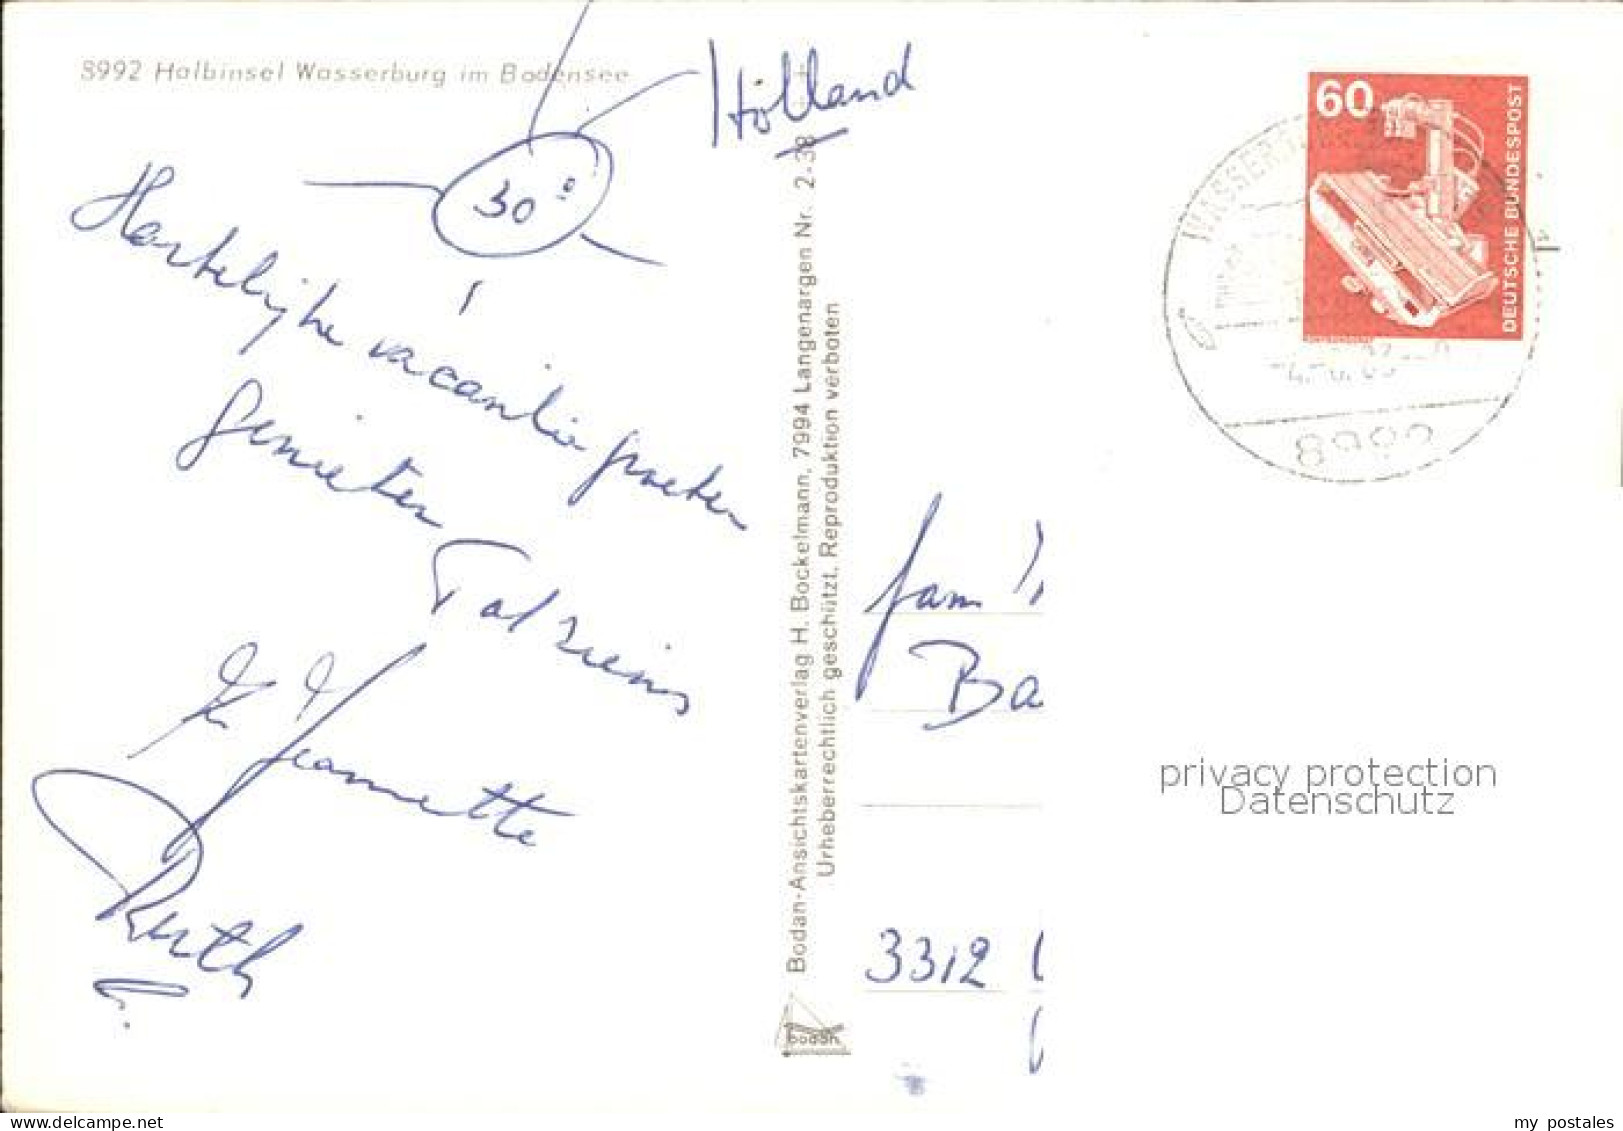 8992 Halbinsel Wasserburg im Bodensee
Holland
30°
Hartelijke vacantie groeten
genieten
Jeannette
Ruth
Bodan-Ansichtskartenverlag H. Bockelmann, 7994 Langenargen Nr. 2-38
Urheberrechtlich geschützt, Reproduktion verboten
bodan
60
DEUTSCHE BUNDESPOST
WASSERBURG
8992
fam
Ba
3312
privacy protection
Datenschutz
my postales